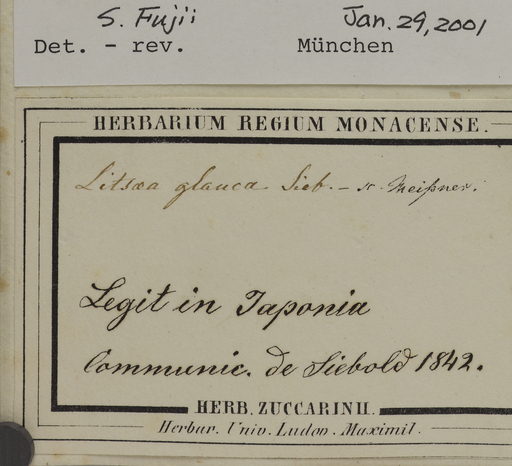 S. Fujii Jan. 29, 2001
Det. - rev. München
HERBARIUM REGIUM MONACENSE.
Litsæa glauca. Sieb. - sc. Meißner.
Legit in Japonia
Communic. de Siebold 1842.
HERB. ZUCCARINII.
Herbar. Univ. Ludov. Maximil.